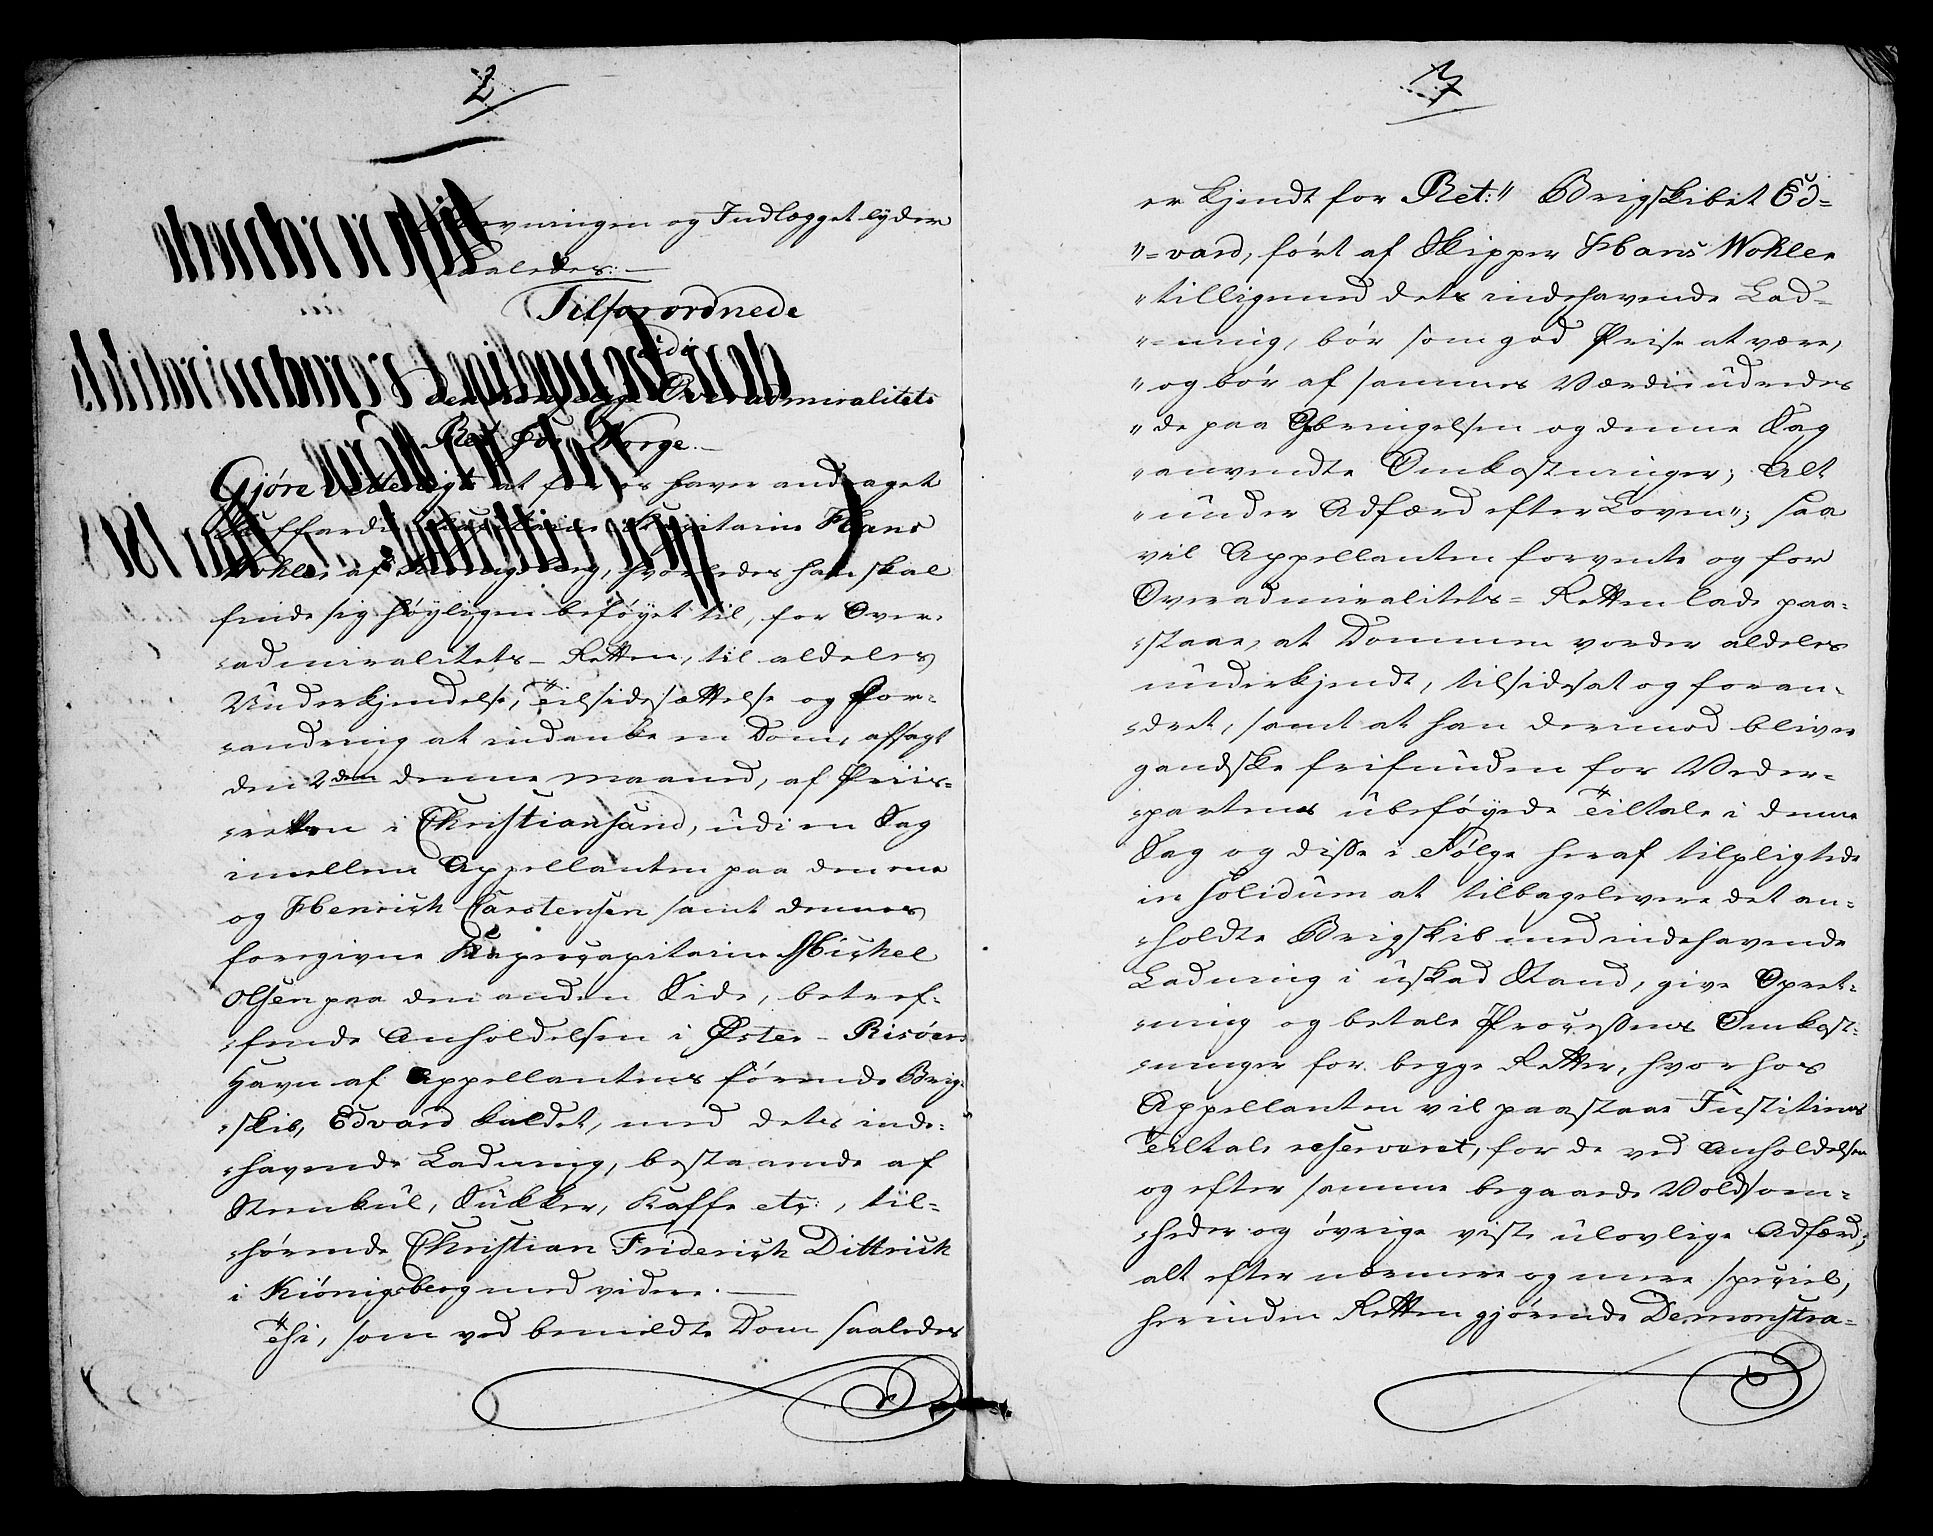 2
Stævningen og Indlægget lyder
saaledes:—
Tilforordnede
udi
den kongelige Overadmiralitets
Ret for Norge.—
Gjøre vitterligt at for os haver andraget
Capitaine Hans
Wohler af Kønigsberg, hvorledes han skal
finde sig høyligen beføyet til, for Over-
-admiralitets-Retten, til aldeles
Underkjendelse, Tilsidesættelse og For-
-andring at indanke en Dom, afsagt
den 2den denne Maaned, af Priis-
-retten i Christiansand, udi en Sag
imellem Appellanten paa den ene
og Henrich Carstensen samt dennes
foregivne Kapercapitaine Michel
Olsen paa den anden Side, betref-
-fende Anholdelsen i Øster-Risøers
Havn af Appellantens førende Brig-
-skib, Edvard kaldet, med dets inde-
-havende Ladning, bestaaende af
Steenkul, Sukker, Kaffe etc:, til-
-hørende Christian Friderich Dittrich
i Kiönigsberg med videre.—
Thi, som ved bemeldte Dom saaledes
3
er kjendt for Ret:" Brigskibet Ed-
"-vard, ført af Skipper Hans Wohler
"tilligemed dets indehavende Lad-
"-ning, bør som god Prise at være,
"og bør af sammes Værdie udredes
"de paa Opbringelsen og denne Sag
"anvendte Omkostninger; Alt
"under Adfærd efter Loven"; saa
vil Appellanten forvente og for
Overadmiralitets-Retten lade paa-
-staae, at Dommen vorder aldeles
underkjendt, tilsidesat og foran-
-dret, samt at han derimod bliver
gandske frifunden for Veder-
-partens ubeføyede Tiltale i denne
Sag og disse i Følge heraf tilpligtede
in solidum at tilbagelevere det an-
-holdte Brigskib med indehavende
Ladning i uskad Stand, give Opret-
-ning og betale Processens Omkost-
-ninger for begge Retter, hvorhos
Appellanten vil paastaae Justitiens
Tiltale reserveret, for de ved Anholdelsen
og efter samme begaaede Voldsom-
-heder og øvrige viste ulovlige Adfærd;
alt efter nærmere og mere speciel,
herinden Retten gjørende Demonstra-